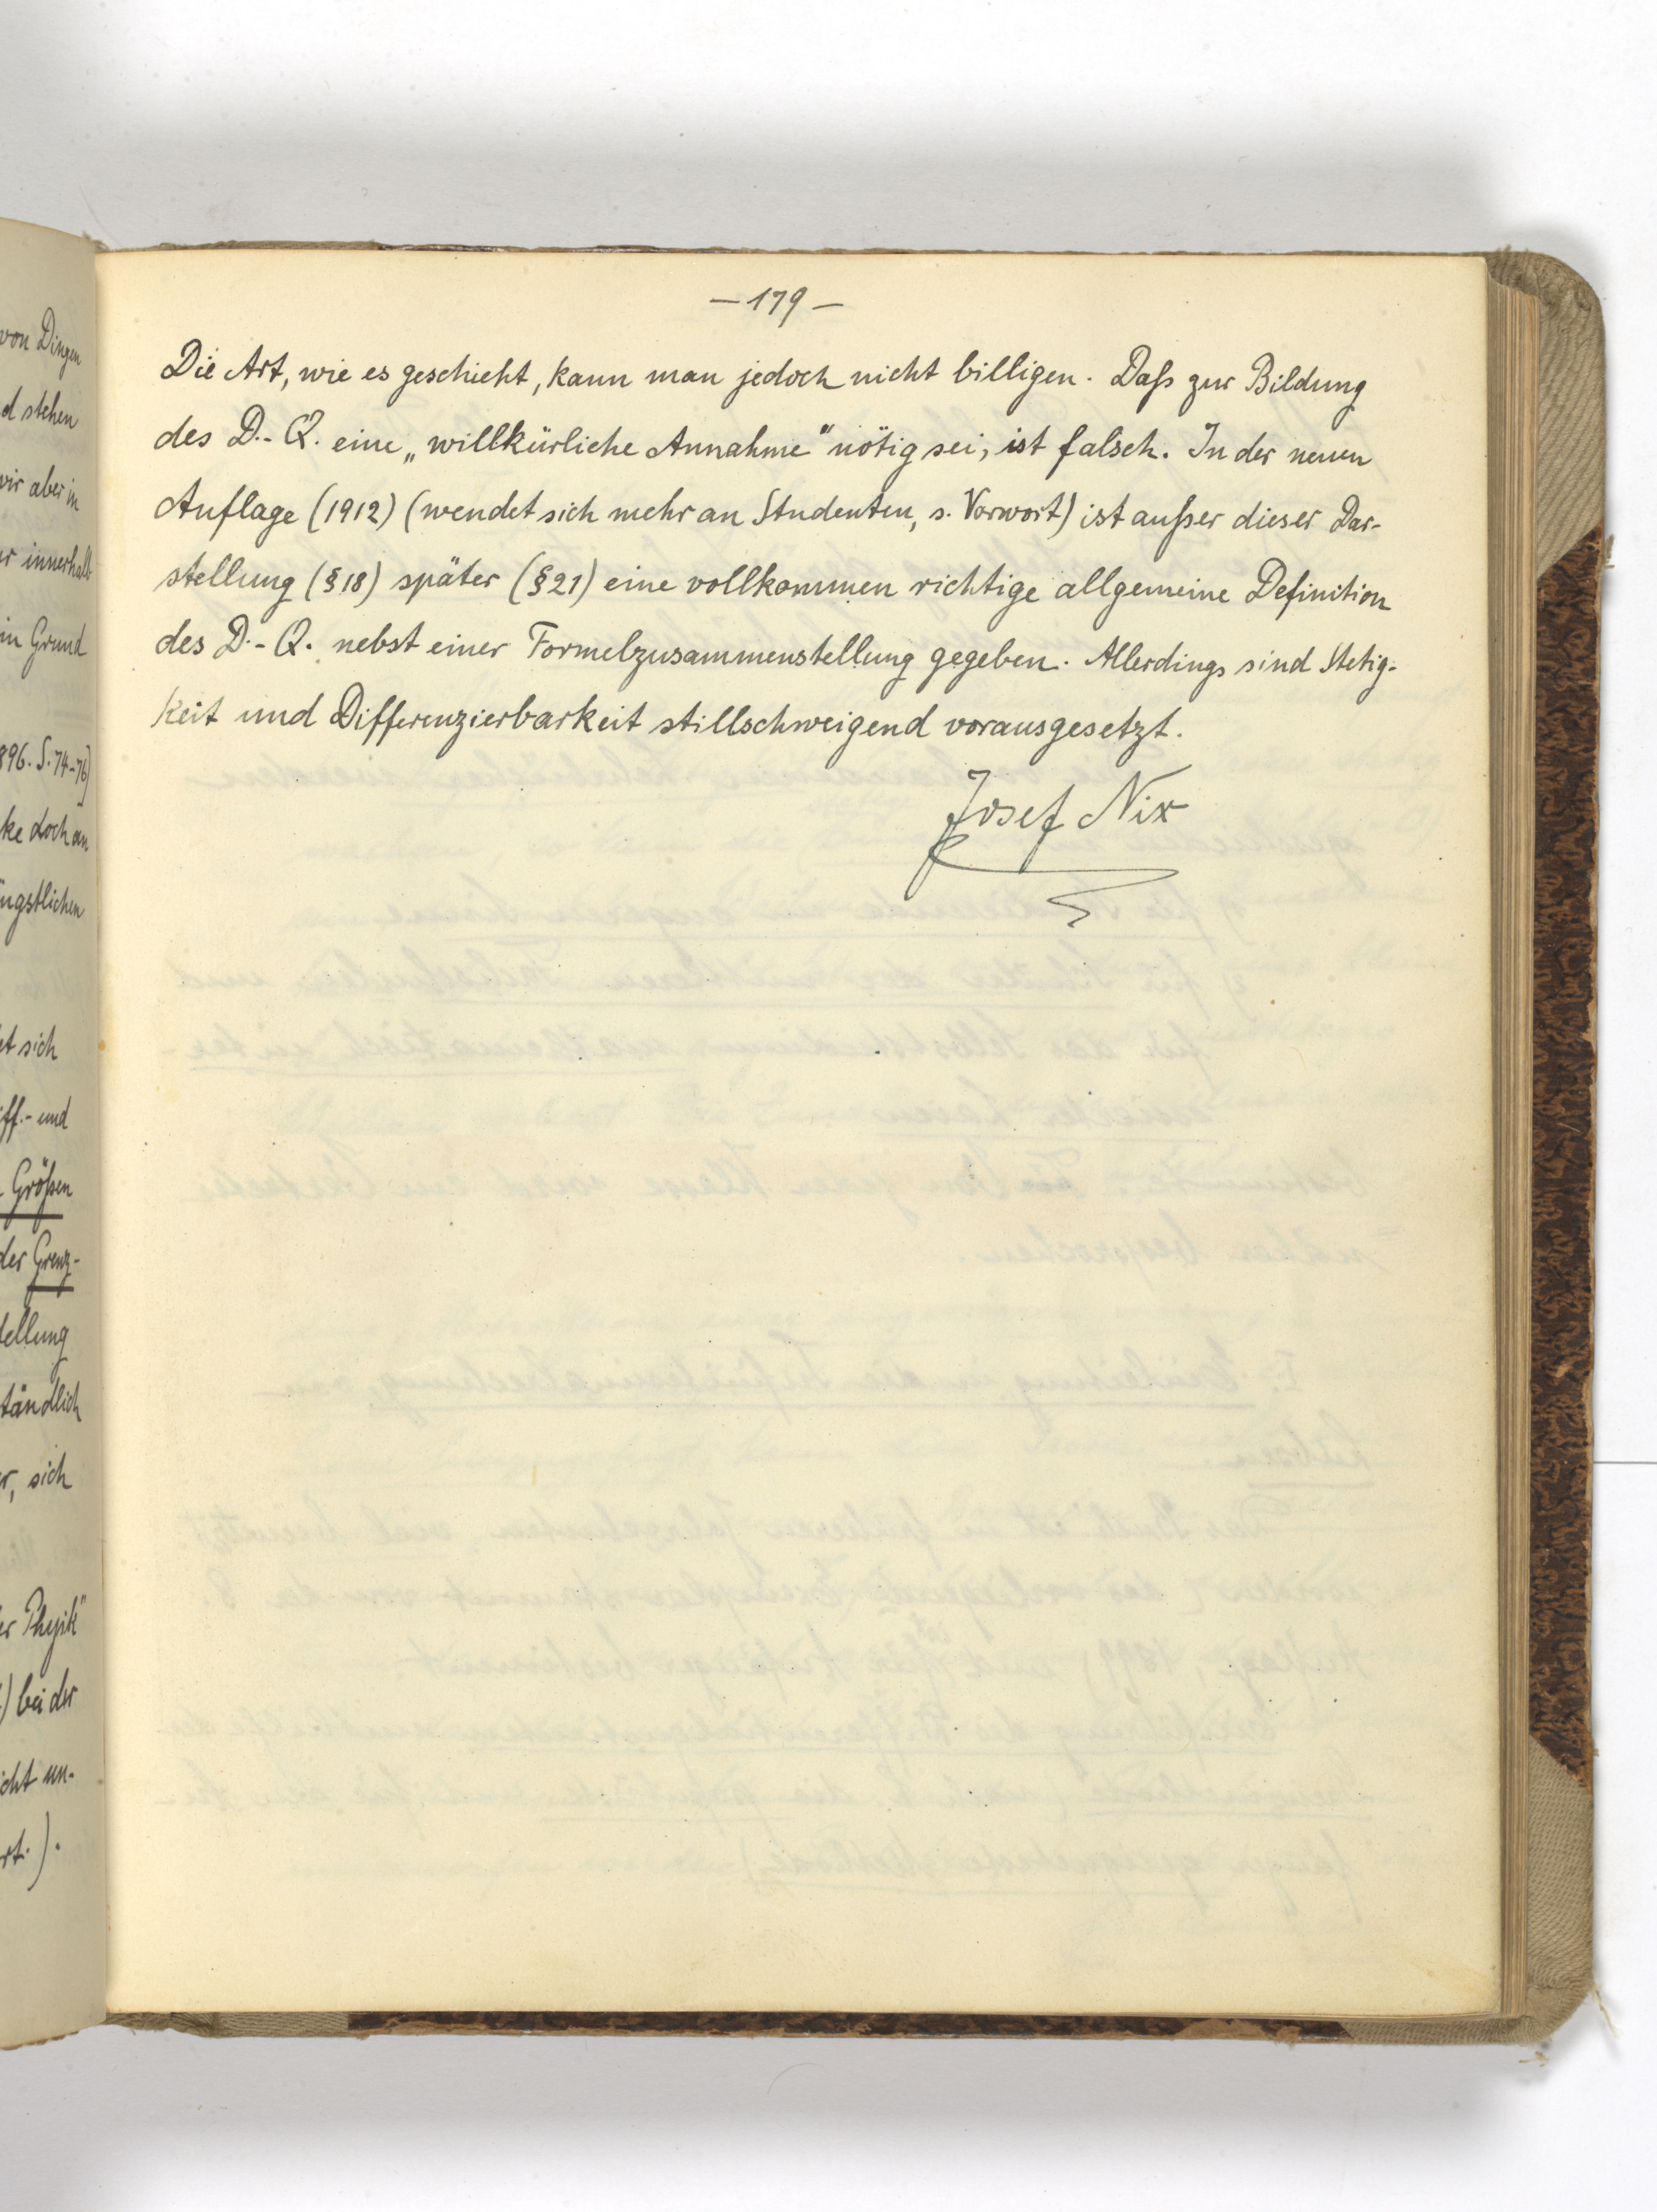 von Dingen
d stehen
wir aber in
er innerhalb
in Grund
896. S. 74-76)
ke doch an
ängstlichen
et sich
iff.- und
Größen
der Grenz-
tellung
tändlich
r, sich
er Physik"
) bei der
icht un-
rt.).
— 179 —
Die Art, wie es geschieht, kann man jedoch nicht billigen. Daß zur Bildung
des D.-Q. eine „willkürliche Annahme" nötig sei, ist falsch. In der neuen
Auflage (1912) (wendet sich mehr an Studenten, s. Vorwort) ist außer dieser Dar-
stellung (§18) später (§21) eine vollkommen richtige allgemeine Definition
des D.-Q. nebst einer Formelzusammenstellung gegeben. Allerdings sind Stetig-
keit und Differenzierbarkeit stillschweigend vorausgesetzt.
Josef Nix